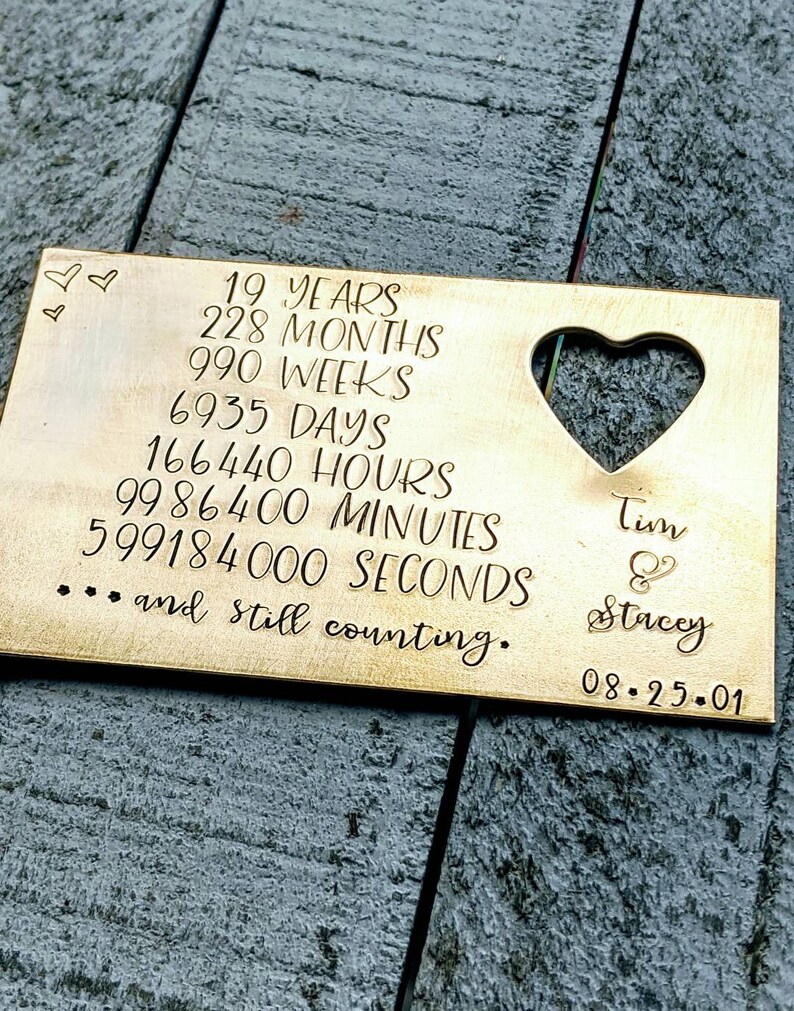 19 YEARS
228 MONTHS
990 WEEKS
6935 DAYS
166440 HOURS
9986400 MINUTES
599184000 SECONDS
...and still counting.
Tim
&
Stacey
08.25.01